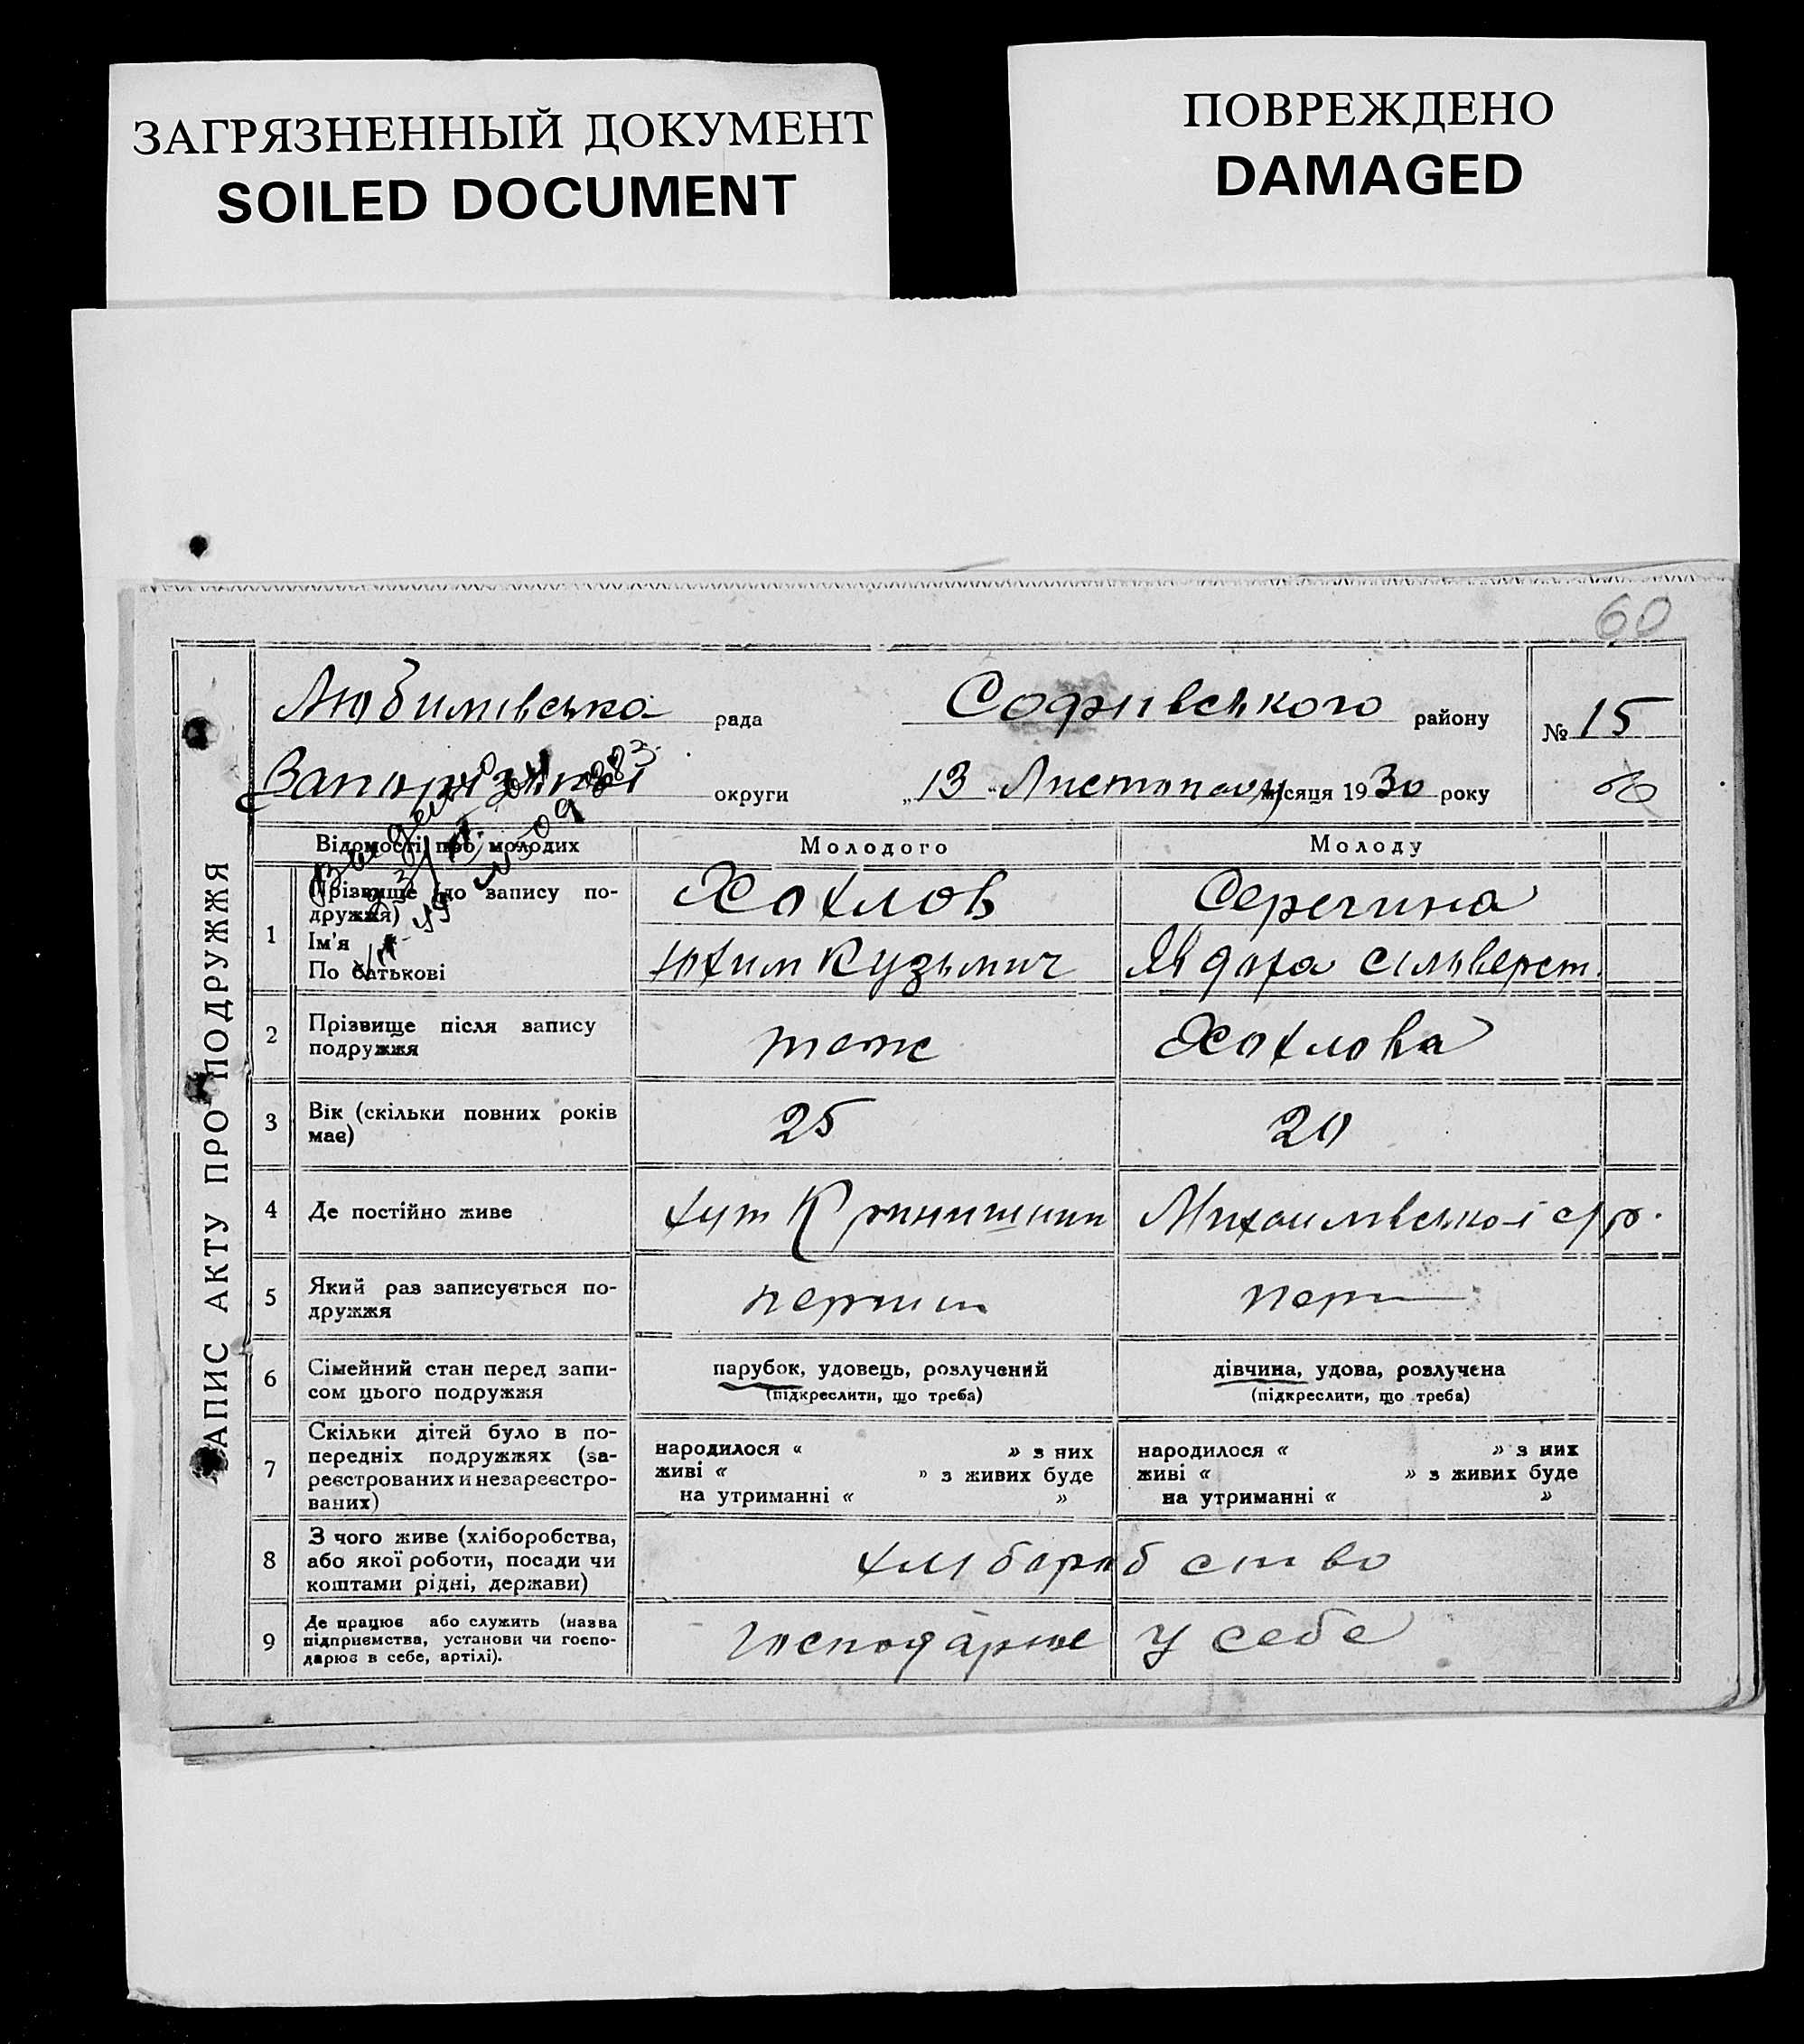 ЗАГРЯЗНЕННЫЙ ДОКУМЕНТ
SOILED DOCUMENT
ПОВРЕЖДЕНО
DAMAGED
60
АПИС АКТУ ПРО ПОДРУЖЖЯ
Любимівська рада Софиївського району № 15
округи „13 Листопаду місяця 1930 року
Відомості про молодих Молодого Молоду
1 Прізвище (до запису по-
дружжя) Хохлов Серегина
Ім'я
По батькові Юхим Кузьмич Явдоха Сильверст.
2 Прізвище після запису
подружжя теж Хохлова
3 Вік (скільки повних років
має) 25 20
4 Де постійно живе хут Михаилівської с/р.
5 Який раз записується по-
дружжя перший перш
6 Сімейний стан перед запи-
сом цього подружжя
парубок, удовець, розлучений
(підкреслити, що треба)
дівчина, удова, розлучена
(підкреслити, що треба)
7 Скільки дітей було в по-
передніх подружжях (за-
реєстрованих и незареєстро-
ваних)
народилося « » з них
живі « » з живих буде
на утриманні « »
народилося « » з них
живі « » з живих буде
на утриманні « »
8 З чого живе (хліборобства,
або якої роботи, посади чи
коштами рідні, держави)
хліборобство
9 Де працює або служить (назва
підприємства, установи чи госпо-
дарює в себе, артілі).
господарює у себе